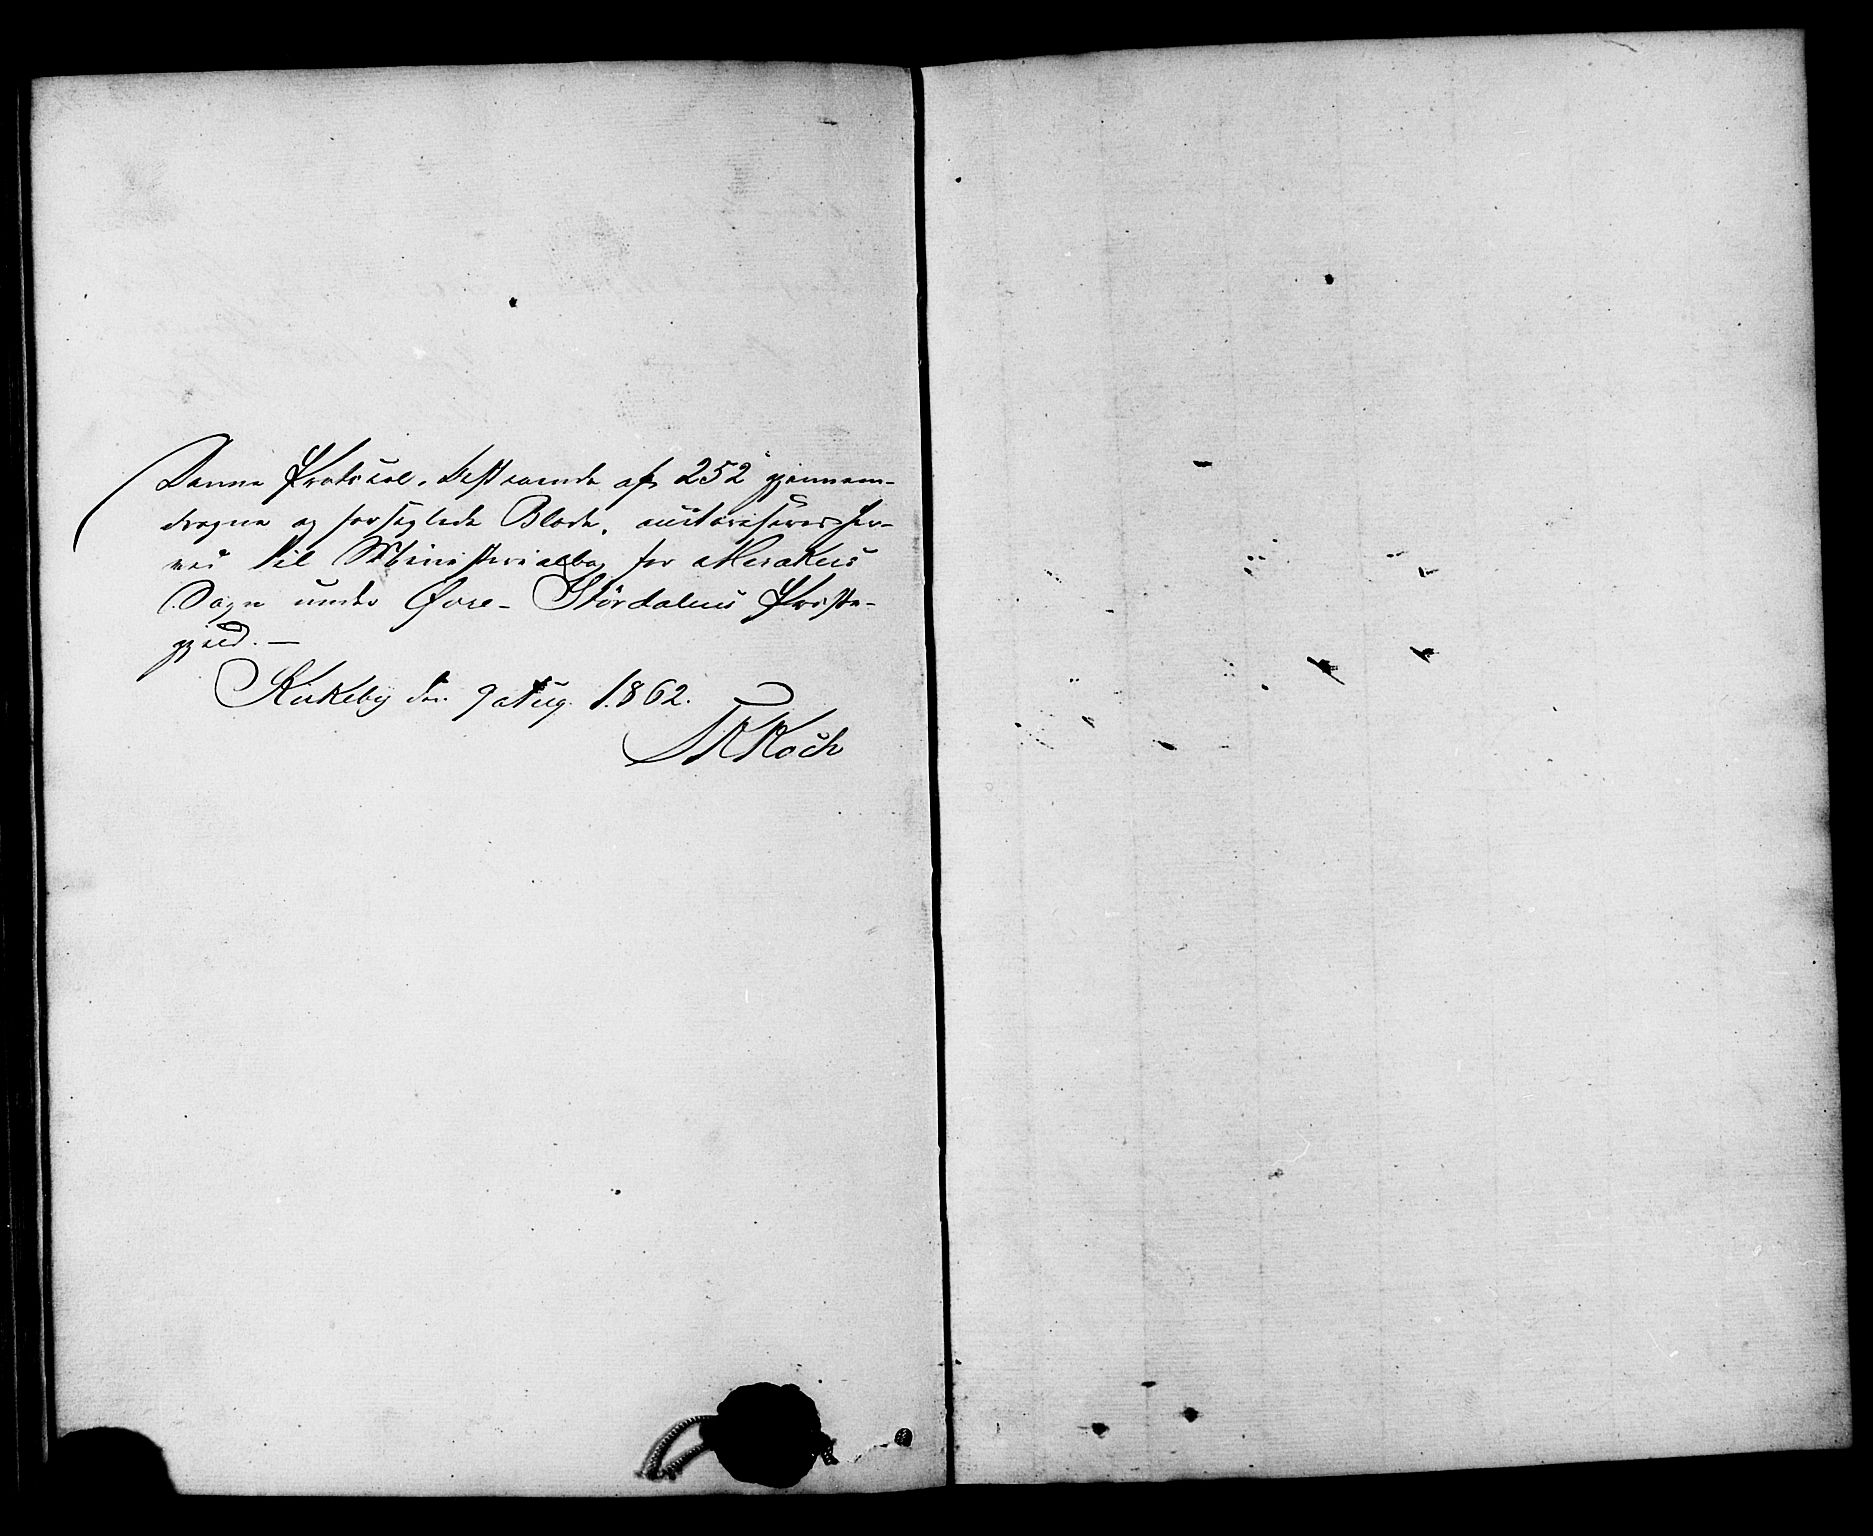 Denne Protocol, bestaaende af 252 gjennem-
dragne og forseglede Blade, autoriseres her-
ved til Ministerialbog for Merakers
Sogn under Øvre-Størdalens Præste-
gjeld. —
Kirkeby den 9 Aug. 1862.
Koch